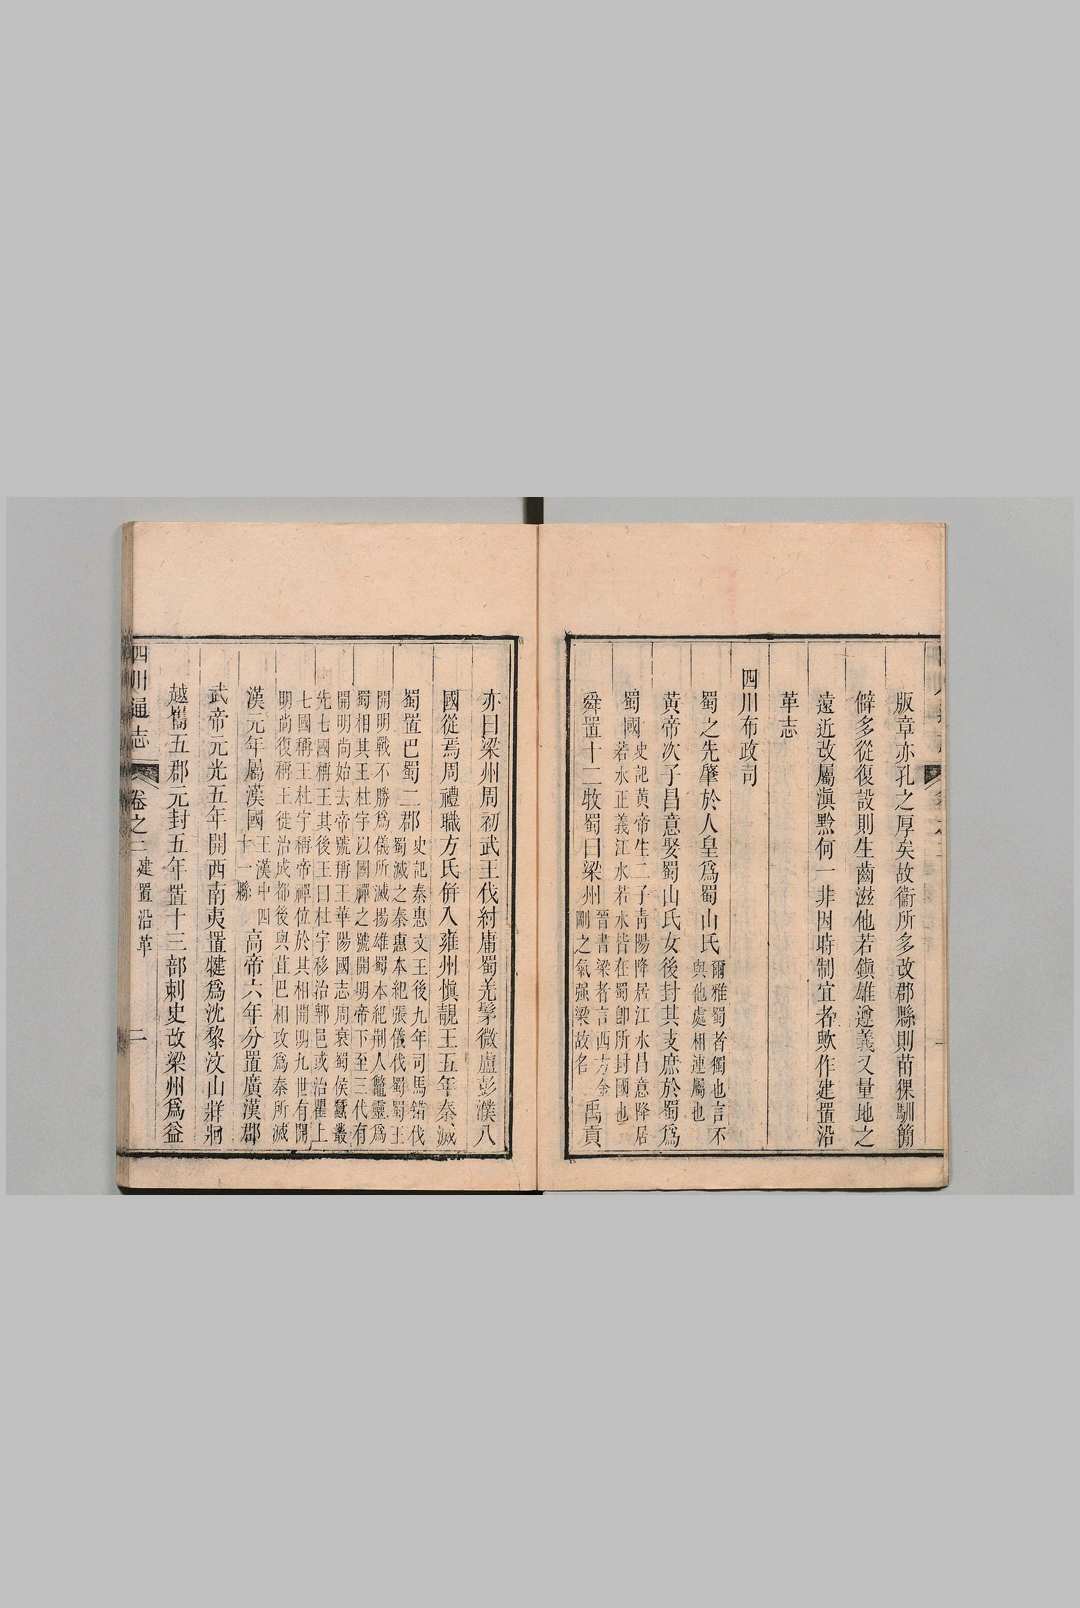 版章亦孔之厚矣故衞所多改郡縣則苗猓馴簡
僻多從復設則生齒滋他若鎭雄遵義又量地之
遠近改屬滇黔何一非因時制宜者歟作建置沿
革志
四川布政司
蜀之先肇於人皇爲蜀山氏
爾雅蜀者獨也言不
與他處相連屬也
黃帝次子昌意娶蜀山氏女後封其支庶於蜀爲
蜀國
史記黃帝生二子靑陽降居江水昌意降居
若水正義江水若水皆在蜀卽所封國也
舜置十二牧蜀曰梁州
晉書梁者言西方金
剛之氣强梁故名
禹貢
亦曰梁州周初武王伐紂庸蜀羌髳微盧彭濮八
國從焉周禮職方氏併入雍州愼靚王五年秦滅
蜀置巴蜀二郡
史記秦惠文王後九年司馬錯伐
蜀滅之秦惠本紀張儀伐蜀蜀王
開明戰不勝爲儀所滅揚雄蜀本紀荆人鼈靈爲
蜀相其王杜宇以國禪之號開明帝下至三代有
開明尚始去帝號稱王華陽國志周衰蜀侯蠶叢
先七國稱王其後王曰杜宇移治郫邑或治瞿上
七國稱王杜宇稱帝禪位於其相開明九世有開
明尚復稱王徙治成都後與苴巴相攻爲秦所滅
漢元年屬漢國
王漢中四
十一縣
高帝六年分置廣漢郡
武帝元光五年開西南夷置犍爲沈黎汶山牂牁
越巂五郡元封五年置十三部刺史改梁州爲益
四川通志
卷之二
建置沿革
二